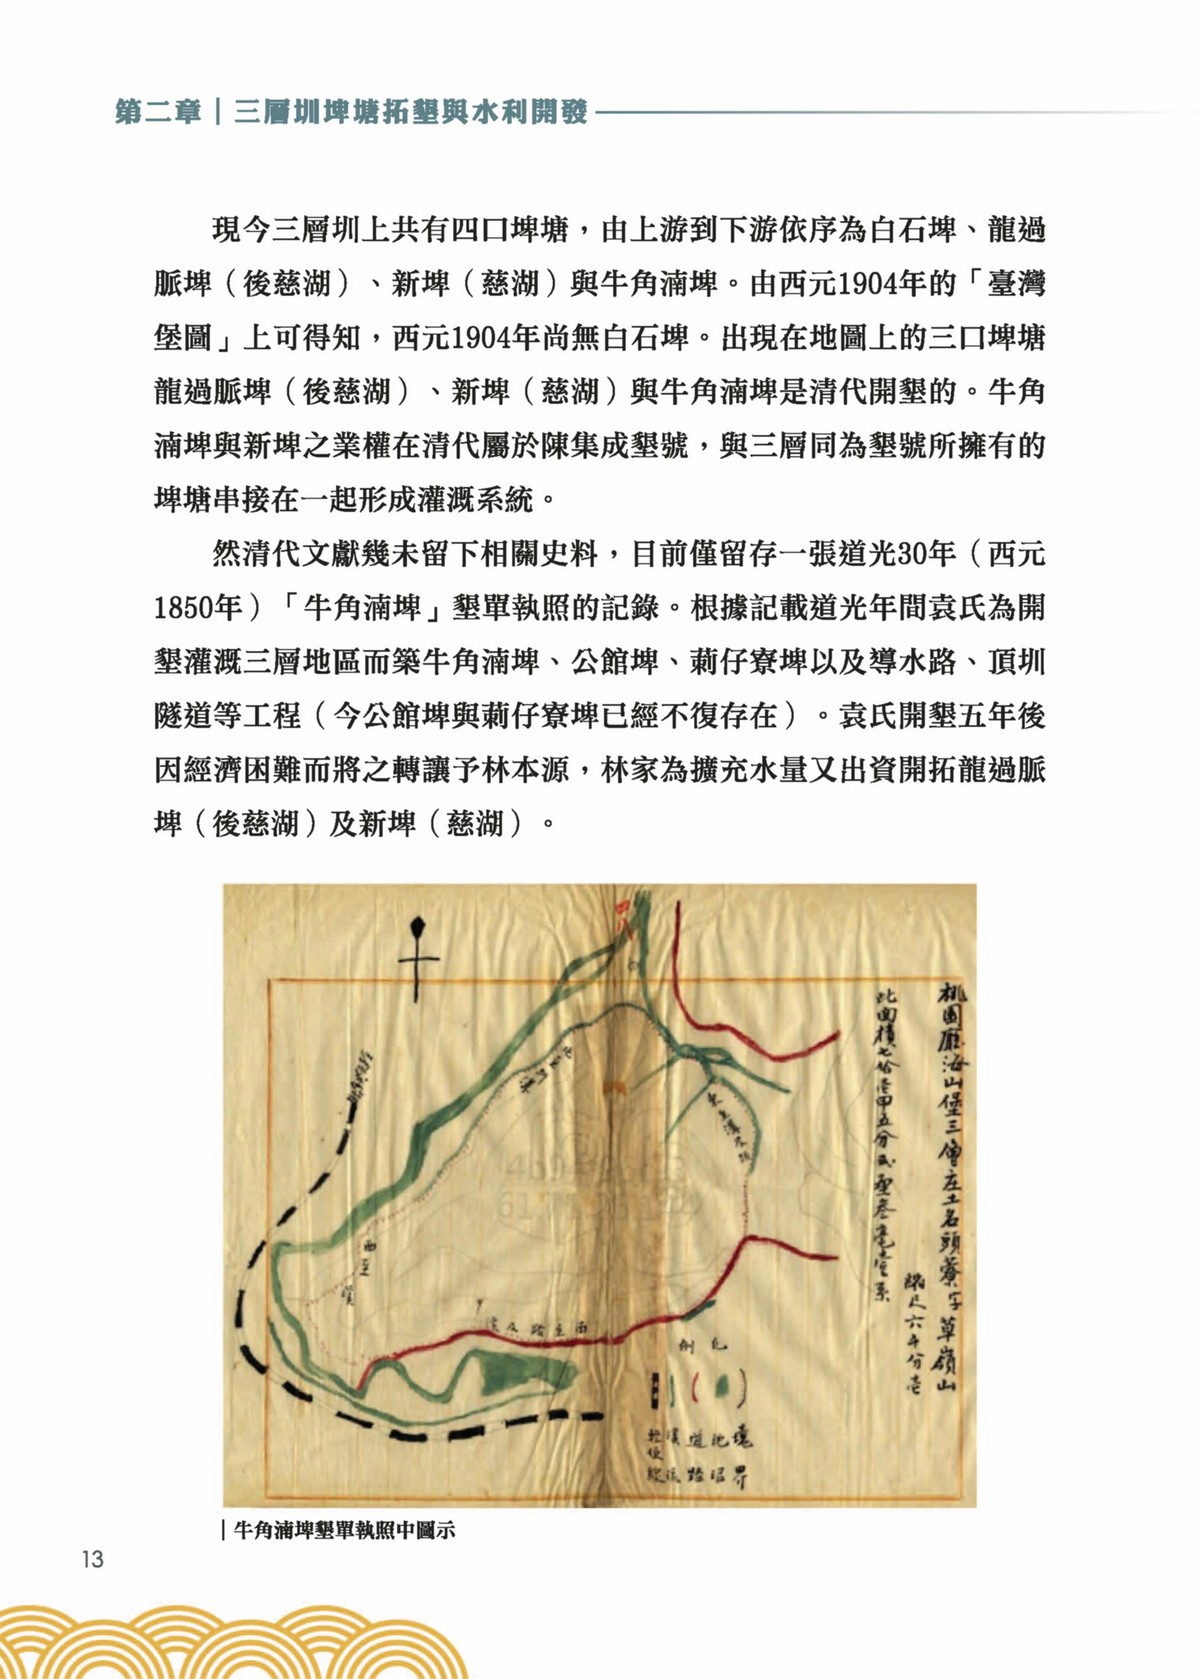 第二章｜三層圳埤塘拓墾與水利開發
現今三層圳上共有四口埤塘，由上游到下游依序為白石埤、龍過
脈埤（後慈湖）、新埤（慈湖）與牛角湳埤。由西元1904年的「臺灣
堡圖」上可得知，西元1904年尚無白石埤。出現在地圖上的三口埤塘
龍過脈埤（後慈湖）、新埤（慈湖）與牛角湳埤是清代開墾的。牛角
湳埤與新埤之業權在清代屬於陳集成墾號，與三層同為墾號所擁有的
埤塘串接在一起形成灌溉系統。
然清代文獻幾未留下相關史料，目前僅留存一張道光30年（西元
1850年）「牛角湳埤」墾單執照的記錄。根據記載道光年間袁氏為開
墾灌溉三層地區而築牛角湳埤、公館埤、莿仔寮埤以及導水路、頂圳
隧道等工程（今公館埤與莿仔寮埤已經不復存在）。袁氏開墾五年後
因經濟困難而將之轉讓予林本源，林家為擴充水量又出資開拓龍過脈
埤（後慈湖）及新埤（慈湖）。
桃園廳海山堡三層庄土名頭藔字草嶺山
縮尺六千分壱
西至
溪
道路
境界
｜牛角湳埤墾單執照中圖示
13